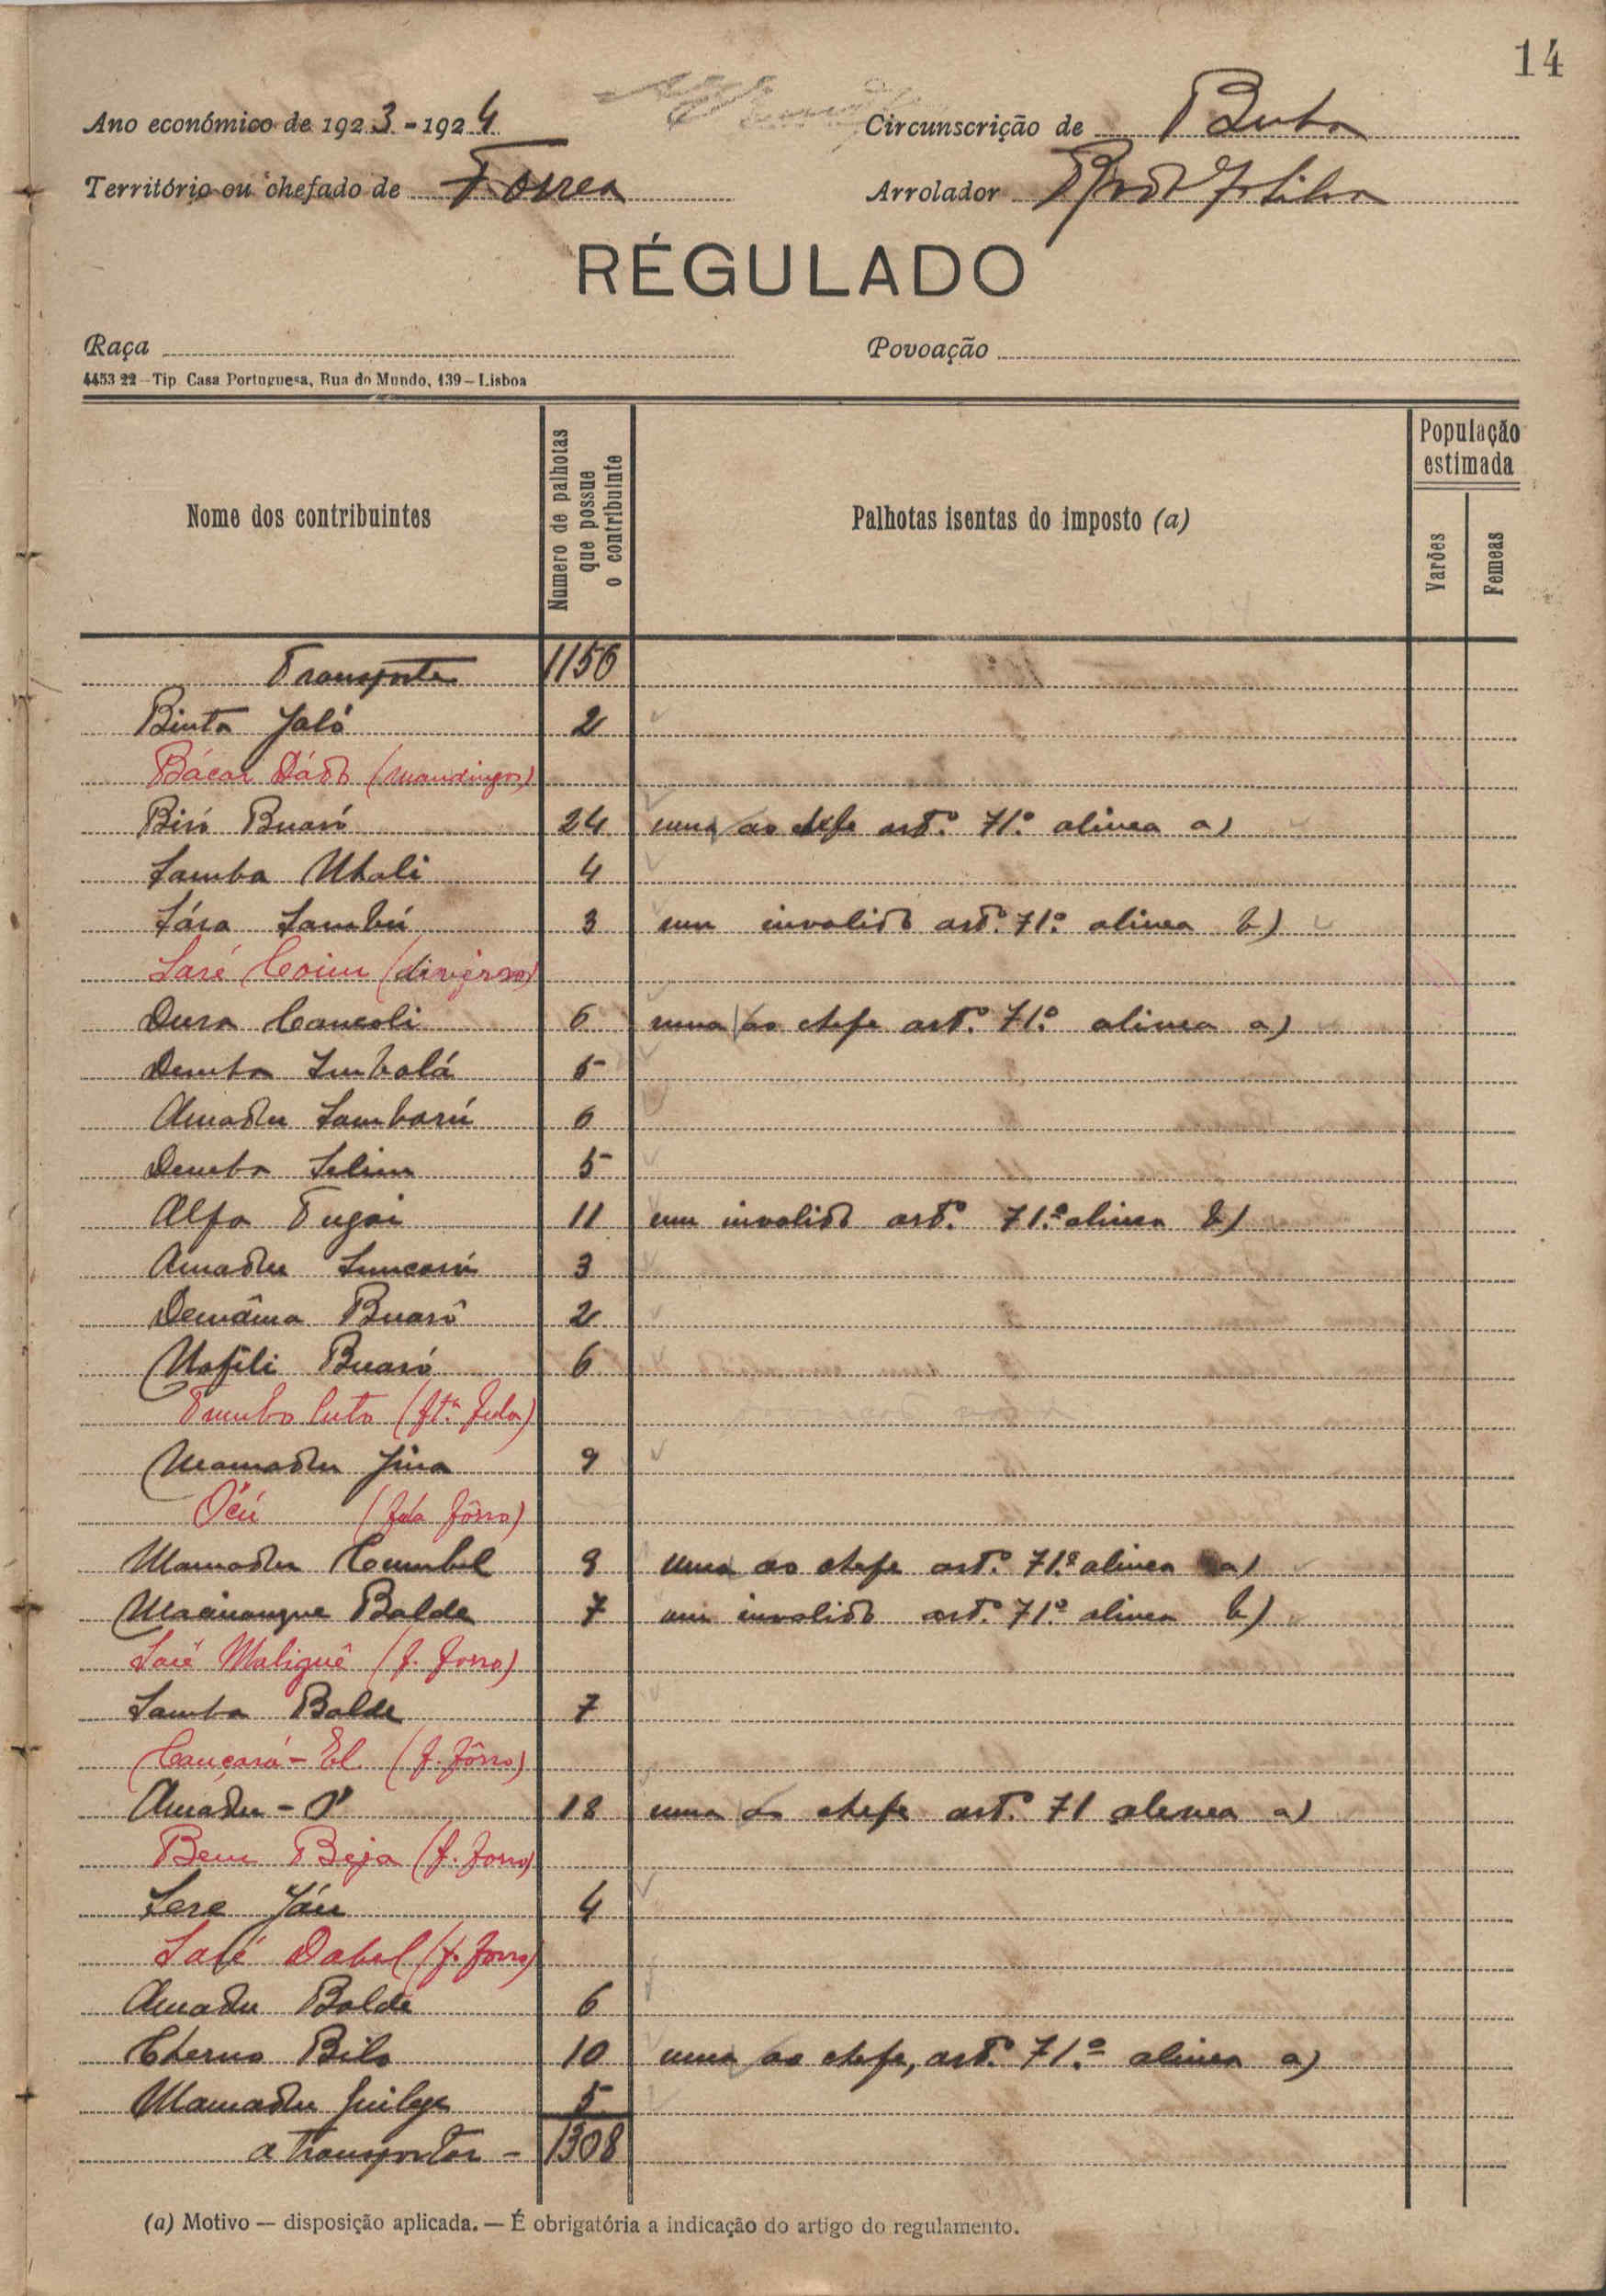 14
Ano económico de 1923-1924
Circunscrição de Buba
Território ou chefado de Forrea
Arrolador
RÉGULADO
Raça
Povoação
4453 22 - Tip. Casa Portuguesa, Rua do Mundo, 139 - Lisboa
Nome dos contribuintes
Numero de palhotas que possue o contribuinte
Palhotas isentas do imposto (a)
População estimada
Varões
Femeas
Transporte 1156
Binta Jaló 2
Bácar Dádo (mandingos)
Biró Buaró 24 uma ao chefe artº. 71º. alinea a)
Samba Uhali 4
Sára Sambú 3 um invalido artº. 71º. alinea b)
Saré Coim (diversos)
Dura Cancoli 6 uma ao chefe artº. 71º. alinea a)
Demba Embalá 5
Amadu Sambarú 6
Demba Selim 5
Alfa Tugai 11 um invalido artº. 71º. alinea b)
Amadu Suncarú 3
Demâma Buaró 2
Mofili Buaró 6
(ft.ª fula)
Mamadu Jina 9
(fula fôrro)
Mamadu Cumbel 9 uma ao chefe artº. 71º. alinea a)
Balde 7 um invalido artº. 71º alinea b)
Saré Maliguê (f. forro)
Samba Balde 7
Cançará-El (f. fôrro)
Amadu - 18 uma ao chefe artº. 71 alinea a)
Bem Beja (f. forro)
Sere Jáu 4
Saré Dabel (f. forro)
Amadu Balde 6
Cherno Bilo 10 uma ao chefe, artº. 71º. alinea a)
Mamadu 5
a transportar - 1308
(a) Motivo — disposição aplicada. — É obrigatória a indicação do artigo do regulamento.